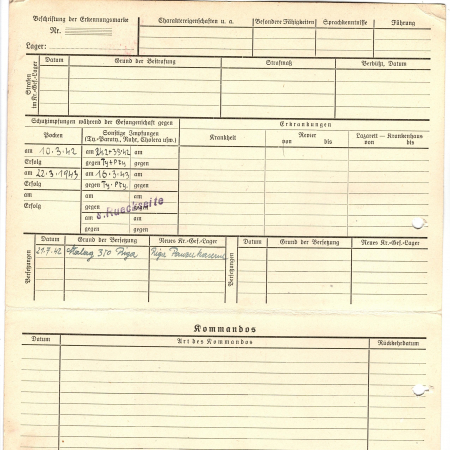 Beschriftung der Erkennungsmarke
Nr.
Lager:
Charaktereigenschaften u. a.
Besondere Fähigkeiten
Sprachkenntnisse
Führung
Strafen im Kr.-Gef.-Lager
Datum
Grund der Bestrafung
Strafmaß
Verbüßt, Datum
Schutzimpfungen während der Gefangenschaft gegen
Erkrankungen
Pocken
Sonstige Impfungen
(Ty.-Paraty., Ruhr, Cholera usw.)
Krankheit
Revier
von bis
Lazarett — Krankenhaus
von bis
am 10.3.42
am 24.2+3.3.42
am
Erfolg
gegen Ty+Pty
gegen
am 22.3.1943
am 16.3.43
am
Erfolg
gegen Ty-Pty
gegen
am
am
am
Erfolg
gegen
gegen
s. Rueckseite
am
am
gegen
gegen
Versetzungen
Datum
Grund der Versetzung
Neues Kr.-Gef.-Lager
Versetzungen
Datum
Grund der Versetzung
Neues Kr.-Gef.-Lager
Stalag 350 Riga
Riga
Kommandos
Datum
Art des Kommandos
Rückkehrdatum